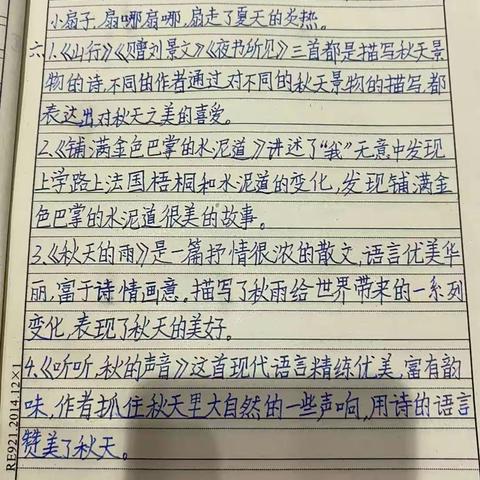 小扇子,扇哪扇哪,扇走了夏天的炎热。
六、1.《山行》《赠刘景文》《夜书所见》三首都是描写秋天景
物的诗,不同的作者通过对不同的秋天景物的描写,都
表达出对秋天之美的喜爱。
2.《铺满金色巴掌的水泥道》讲述了“我”无意中发现
上学路上法国梧桐和水泥道的变化,发现铺满金
色巴掌的水泥道很美的故事。
3.《秋天的雨》是一篇抒情很浓的散文,语言优美华
丽,富于诗情画意。描写了秋雨给世界带来的一系列
变化,表现了秋天的美好。
4.《听听,秋的声音》这首现代语言精练优美,富有韵
味,作者抓住秋天里大自然的一些声响,用诗的语言
赞美了秋天。
RE921.2014.12×1